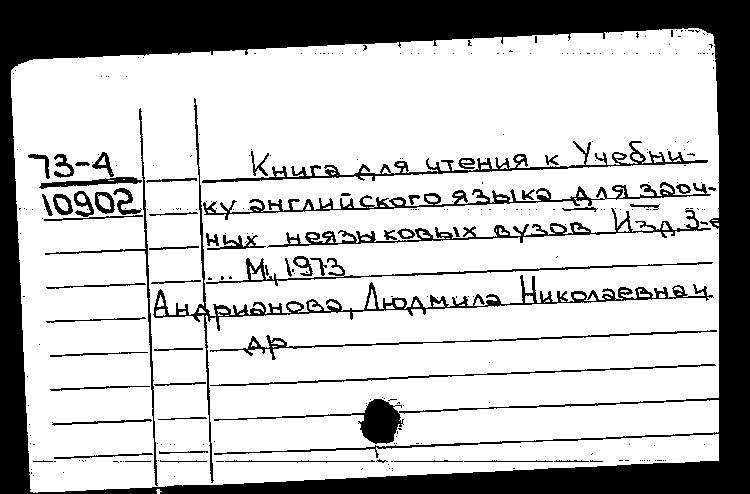 73-4
10902
Книга для чтения к Учебни-
ку английского языка для заоч-
ных неязыковых вузов Изд. 3-е
... М., 1973.
Андрианова, Людмила Николаевна и
др.